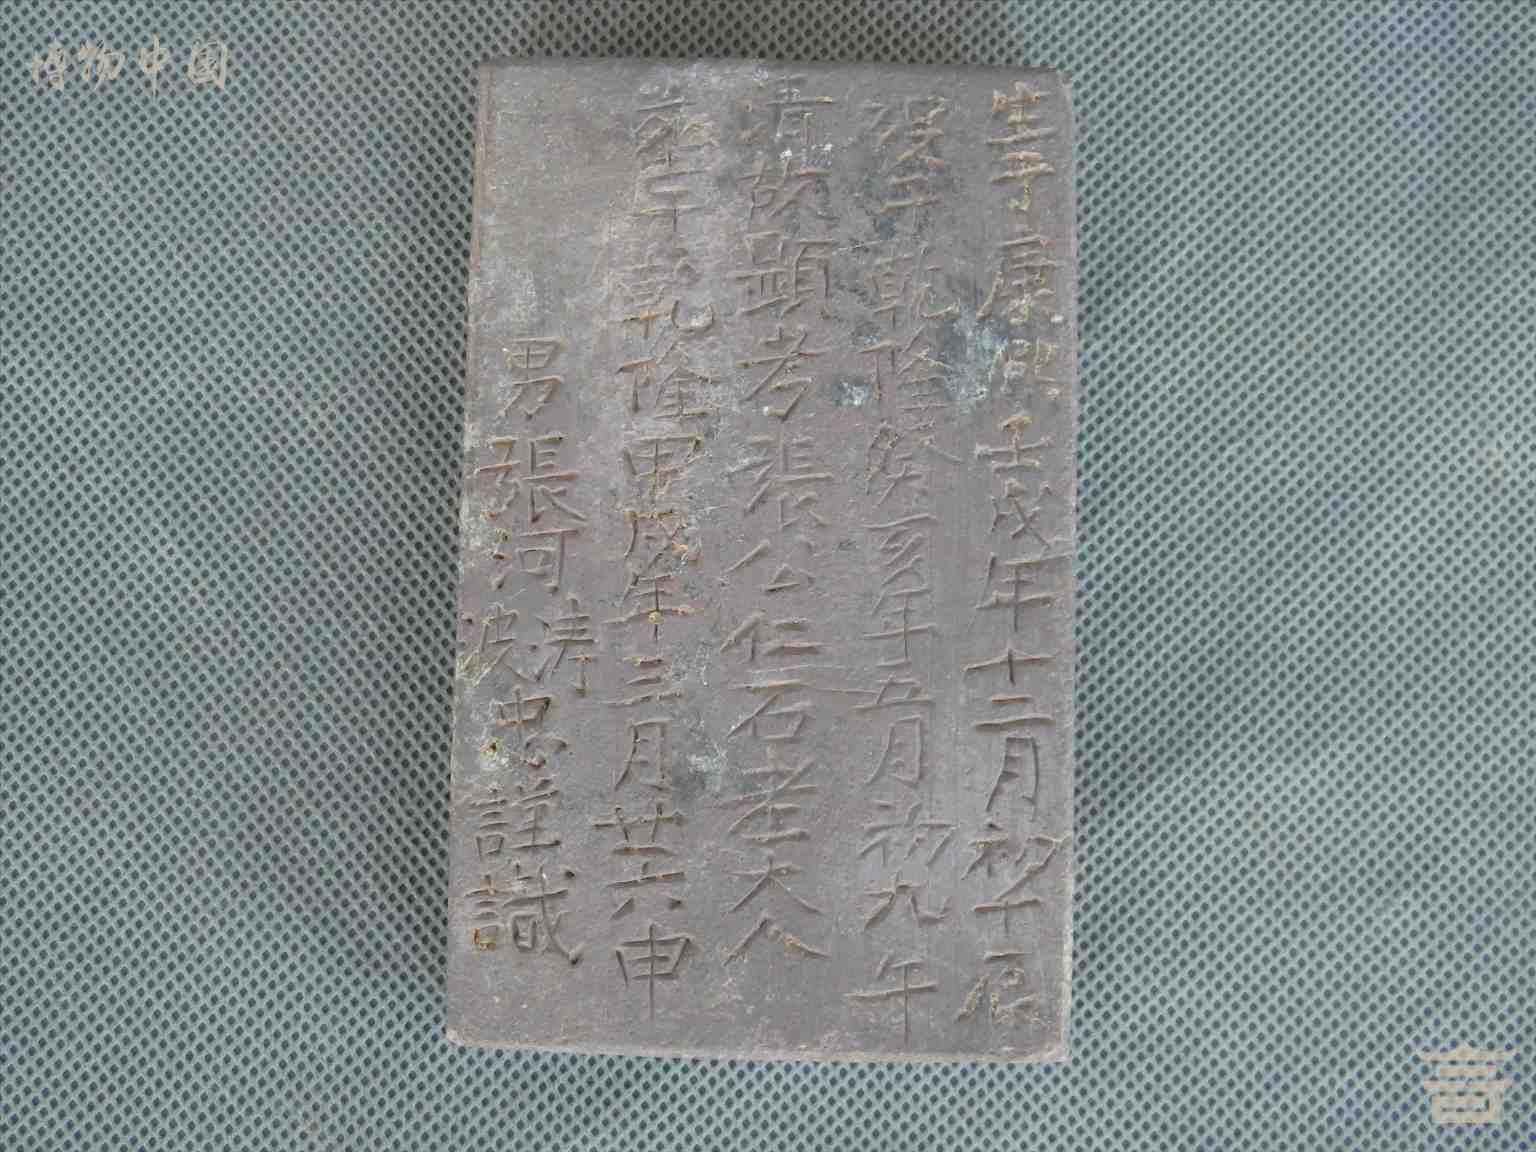 博物中国
生于康熙壬戌年十二月初十辰
没于乾隆癸亥年五月初九午
清故顯考張公仁石老大人
葬于乾隆甲戌年三月廿六申
男張河濤波忠謹識